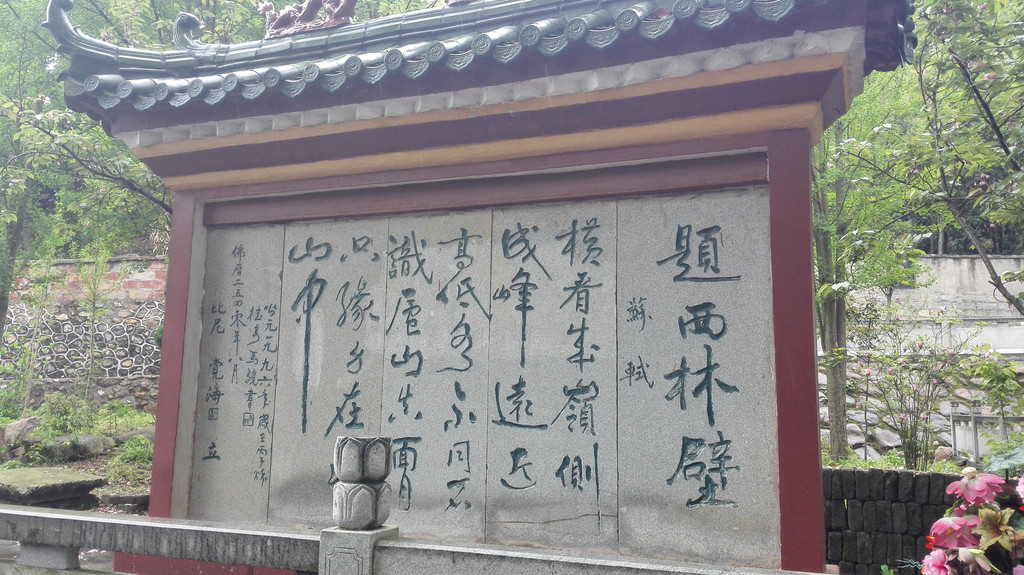 題西林壁
蘇軾
橫看成嶺側
成峰遠近
高低各不同不
識廬山真面目
只緣身在
山中
公元一九九六年歲
書
佛曆二五四
年八月
比尼
海
立